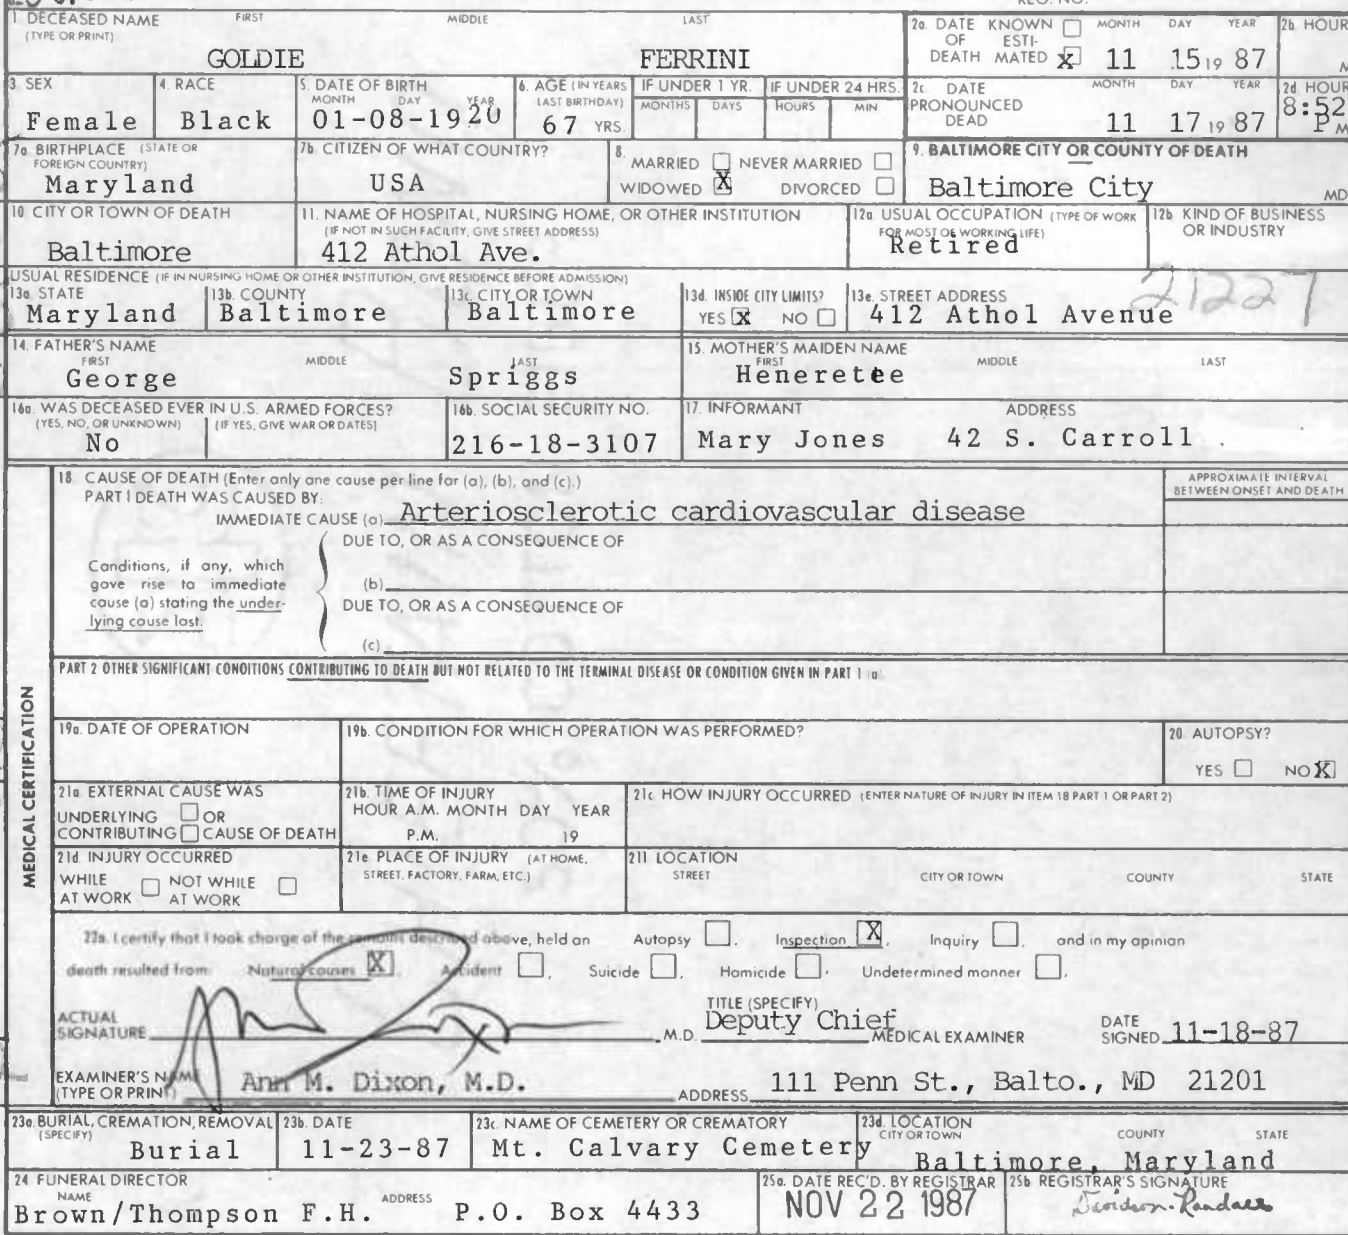 REG. NO.
1 DECEASED NAME FIRST MIDDLE LAST
(TYPE OR PRINT)
GOLDIE FERRINI
2a. DATE OF DEATH KNOWN ☐ ESTIMATED ☒ MONTH DAY YEAR 2b HOUR
11 15 19 87 M
3 SEX 4. RACE 5. DATE OF BIRTH 6. AGE (IN YEARS LAST BIRTHDAY) IF UNDER 1 YR. IF UNDER 24 HRS.
MONTH DAY YEAR MONTHS DAYS HOURS MIN
Female Black 01-08-1920 67 YRS.
2c DATE PRONOUNCED DEAD MONTH DAY YEAR 2d HOUR
11 17 19 87 8:52 P M
7a BIRTHPLACE (STATE OR FOREIGN COUNTRY)
Maryland
7b. CITIZEN OF WHAT COUNTRY?
USA
8. MARRIED ☐ NEVER MARRIED ☐
WIDOWED ☒ DIVORCED ☐
9. BALTIMORE CITY OR COUNTY OF DEATH
Baltimore City MD
10 CITY OR TOWN OF DEATH
Baltimore
11. NAME OF HOSPITAL, NURSING HOME, OR OTHER INSTITUTION
(IF NOT IN SUCH FACILITY, GIVE STREET ADDRESS)
412 Athol Ave.
12a USUAL OCCUPATION (TYPE OF WORK FOR MOST OF WORKING LIFE)
Retired
12b KIND OF BUSINESS OR INDUSTRY
USUAL RESIDENCE (IF IN NURSING HOME OR OTHER INSTITUTION, GIVE RESIDENCE BEFORE ADMISSION)
13a. STATE 13b. COUNTY 13c. CITY OR TOWN 13d. INSIDE CITY LIMITS? 13e. STREET ADDRESS 21227
Maryland Baltimore Baltimore YES ☒ NO ☐ 412 Athol Avenue
14. FATHER'S NAME
FIRST MIDDLE LAST
George Spriggs
15. MOTHER'S MAIDEN NAME
FIRST MIDDLE LAST
Heneretee
16a. WAS DECEASED EVER IN U.S. ARMED FORCES?
(YES, NO, OR UNKNOWN) (IF YES, GIVE WAR OR DATES)
No
16b. SOCIAL SECURITY NO.
216-18-3107
17. INFORMANT ADDRESS
Mary Jones 42 S. Carroll
MEDICAL CERTIFICATION
18 CAUSE OF DEATH (Enter only one cause per line for (a), (b), and (c).)
PART I DEATH WAS CAUSED BY:
APPROXIMATE INTERVAL BETWEEN ONSET AND DEATH
IMMEDIATE CAUSE (a) Arteriosclerotic cardiovascular disease
DUE TO, OR AS A CONSEQUENCE OF
Conditions, if any, which
gave rise to immediate (b)
cause (a) stating the under- DUE TO, OR AS A CONSEQUENCE OF
lying cause last.
(c)
PART 2 OTHER SIGNIFICANT CONDITIONS CONTRIBUTING TO DEATH BUT NOT RELATED TO THE TERMINAL DISEASE OR CONDITION GIVEN IN PART 1 (a)
19a. DATE OF OPERATION 19b. CONDITION FOR WHICH OPERATION WAS PERFORMED? 20 AUTOPSY?
YES ☐ NO ☒
21a EXTERNAL CAUSE WAS
UNDERLYING ☐ OR
CONTRIBUTING ☐ CAUSE OF DEATH
21b. TIME OF INJURY
HOUR A.M. MONTH DAY YEAR
P.M. 19
21c. HOW INJURY OCCURRED (ENTER NATURE OF INJURY IN ITEM 18 PART 1 OR PART 2)
21d. INJURY OCCURRED
WHILE AT WORK ☐ NOT WHILE AT WORK ☐
21e PLACE OF INJURY (AT HOME, STREET, FACTORY, FARM, ETC.)
21f LOCATION
STREET CITY OR TOWN COUNTY STATE
22a. I certify that I took charge of the remains described above, held an Autopsy ☐, Inspection ☒, Inquiry ☐, and in my opinion
death resulted from: Natural causes ☒, Accident ☐, Suicide ☐, Homicide ☐, Undetermined manner ☐,
ACTUAL SIGNATURE M.D. TITLE (SPECIFY) Deputy Chief MEDICAL EXAMINER DATE SIGNED 11-18-87
EXAMINER'S NAME (TYPE OR PRINT) Ann M. Dixon, M.D. ADDRESS 111 Penn St., Balto., MD 21201
23a. BURIAL, CREMATION, REMOVAL (SPECIFY)
Burial
23b. DATE
11-23-87
23c. NAME OF CEMETERY OR CREMATORY
Mt. Calvary Cemetery
23d. LOCATION
CITY OR TOWN COUNTY STATE
Baltimore, Maryland
24 FUNERAL DIRECTOR
NAME ADDRESS
Brown/Thompson F.H. P.O. Box 4433
25a. DATE REC'D. BY REGISTRAR
NOV 22 1987
25b REGISTRAR'S SIGNATURE